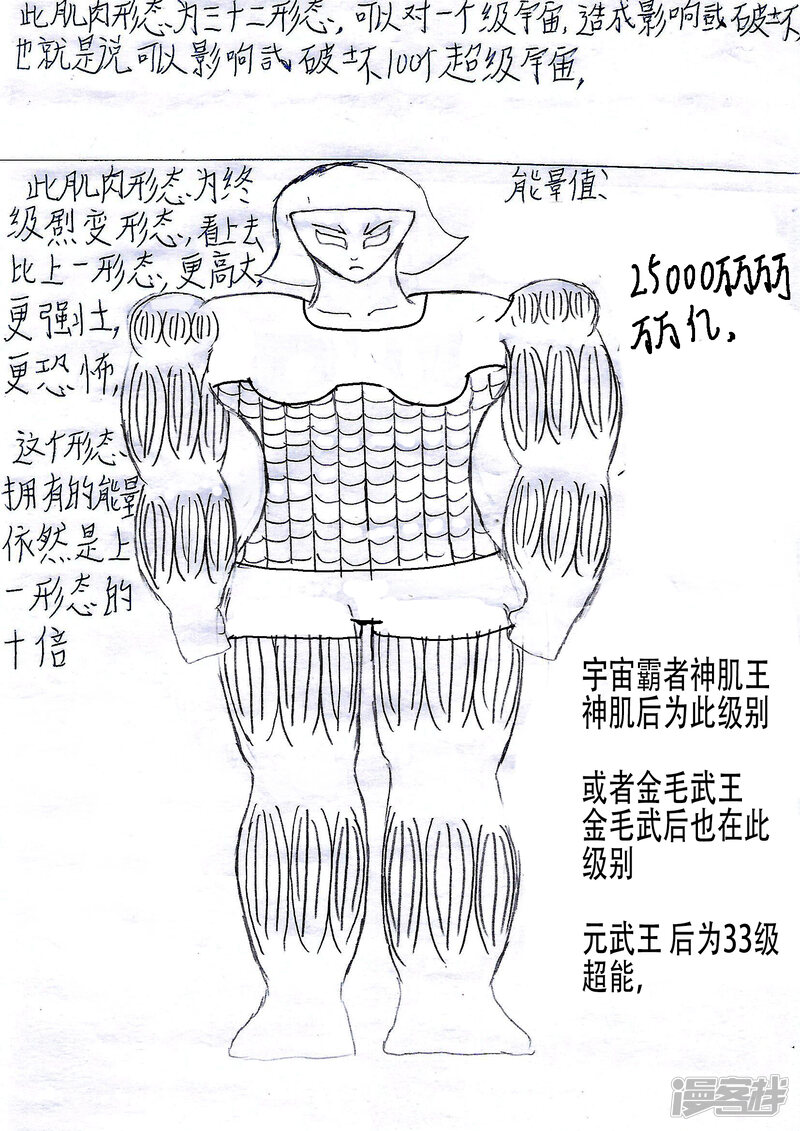 此肌肉形态为三十二形态，可以对一个级宇宙，造成影响或破坏
也就是说可以影响或破坏100个超级宇宙，
此肌肉形态为终
级烈变形态，看上去
比上一形态，更高大，
更强壮，
更恐怖，
这个形态、
拥有的能量
依然是上
一形态的
十倍
能量值、
25000万万万
万亿，
宇宙霸者神肌王
神肌后为此级别
或者金毛武王
金毛武后也在此
级别
元武王 后为33级
超能，
漫客栈